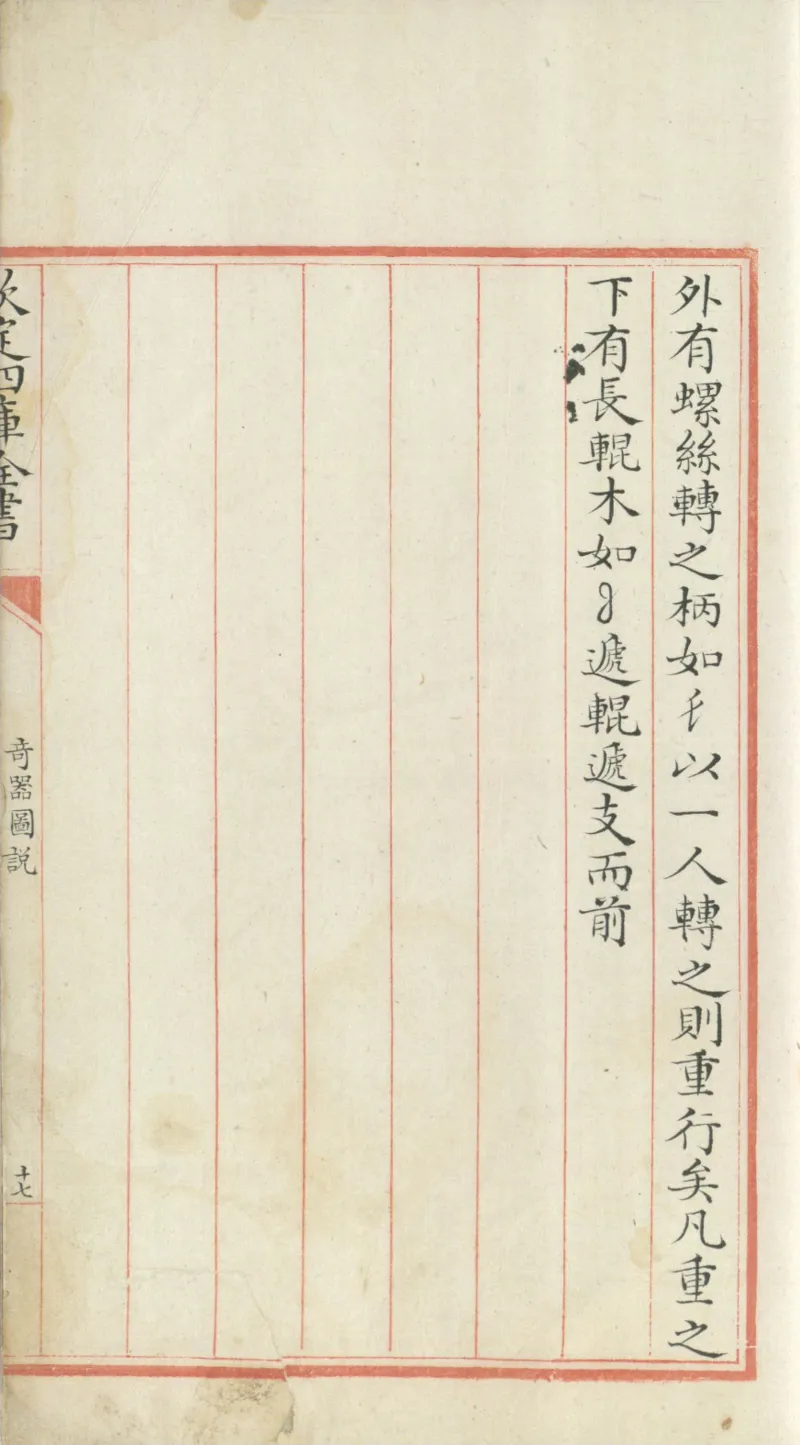 外有螺絲轉之柄如彳以一人轉之則重行矣凡重之
下有長輥木如遞輥遞支而前
欽定四庫全書
奇器圖説
十七